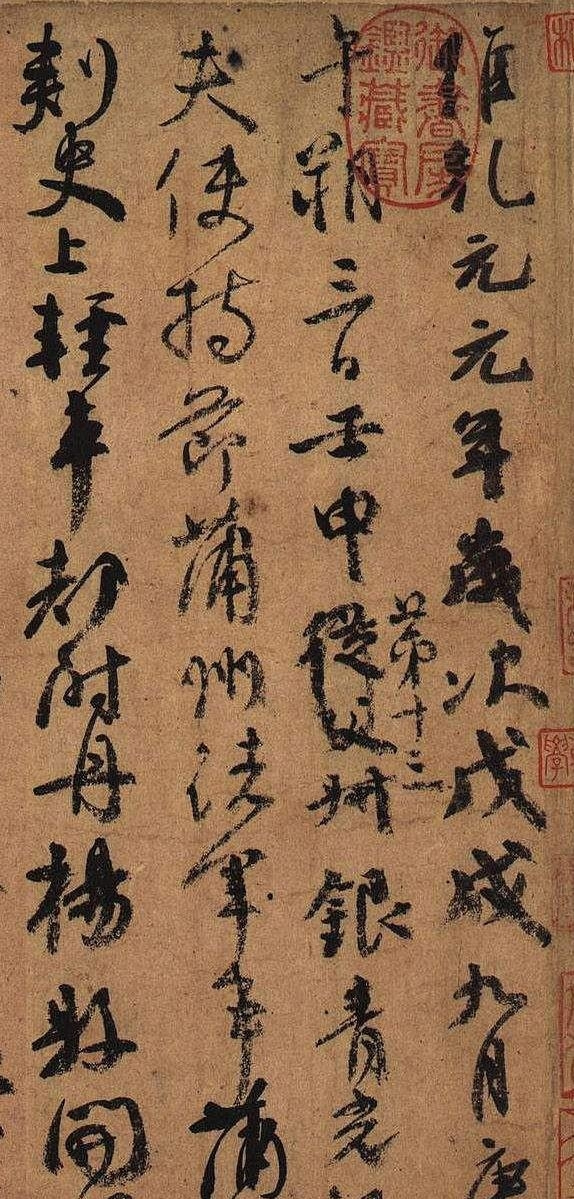 維乾元元年歲次戊戌九月庚
午朔三日壬申第十三從父叔銀青光
夫使持節蒲州諸軍事蒲
刺史上輕車都尉丹楊縣開
御書房鑑藏寶